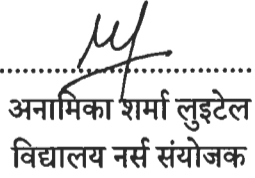 अनामिका शर्मा लुइटेल
विद्यालय नर्स संयोजक